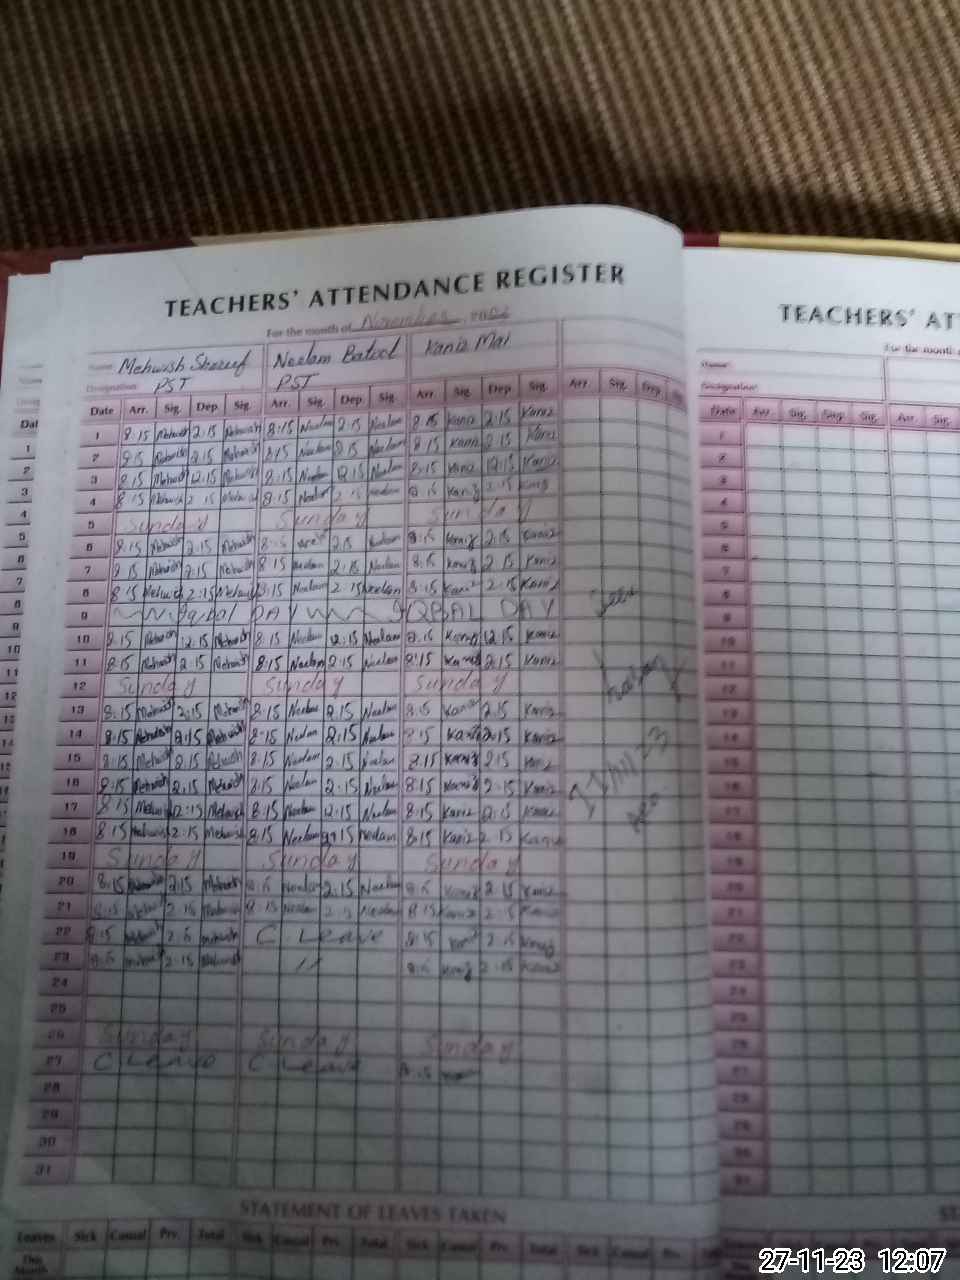 TEACHERS' ATTENDANCE REGISTER
TEACHERS' AT
For the month of November
For the month
Name Mehwish Shareef Neelam Batool Kaniz Mai
Designation PST PST
Date Arr. Sig. Dep. Sig. Arr. Sig. Dep. Sig. Arr. Sig. Dep. Sig. Arr. Sig. Dep. Sig.
1 8:15 Mehwish 2:15 Mehwish 8:15 Neelam 2:15 Neelam 8:15 Kaniz 2:15 Kaniz
2 8:15 Mehwish 2:15 Mehwish 8:15 Neelam 2:15 Neelam 8:15 Kaniz 2:15 Kaniz
3 8:15 Mehwish 12:15 Mehwish 8:15 Neelam 12:15 Neelam 8:15 Kaniz 12:15 Kaniz
4 8:15 Mehwish 2:15 Mehwish 8:15 Neelam 2:15 Neelam 8:15 Kaniz 2:15 Kaniz
5 Sunday Sunday Sunday
6 8:15 Mehwish 2:15 Mehwish 8:15 2:15 Neelam 8:15 Kaniz 2:15 Kaniz
7 8:15 Mehwish 2:15 Mehwish 8:15 Neelam 2:15 Neelam 8:15 Kaniz 2:15 Kaniz
8 8:15 Mehwish 2:15 Mehwish 8:15 Neelam 2:15 Neelam 8:15 Kaniz 2:15 Kaniz
9 Iqbal DAY IQBAL DAY
10 8:15 Mehwish 12:15 Mehwish 8:15 Neelam 12:15 Neelam 8:15 Kaniz 12:15 Kaniz
11 8:15 Mehwish 2:15 Mehwish 8:15 Neelam 2:15 Neelam 8:15 Kaniz 2:15 Kaniz
12 Sunday Sunday Sunday
13 8:15 Mehwish 2:15 Mehwish 8:15 Neelam 2:15 Neelam 8:15 Kaniz 2:15 Kaniz
14 8:15 Mehwish 2:15 Mehwish 8:15 Neelam 2:15 Neelam 8:15 Kaniz 2:15 Kaniz
15 8:15 Mehwish 2:15 Mehwish 8:15 Neelam 2:15 Neelam 8:15 Kaniz 2:15 Kaniz
16 8:15 Mehwish 2:15 Mehwish 8:15 Neelam 2:15 Neelam 8:15 Kaniz 2:15 Kaniz
17 8:15 Mehwish 12:15 Mehwish 8:15 Neelam 12:15 Neelam 8:15 Kaniz 12:15 Kaniz
18 8:15 Mehwish 2:15 Mehwish 8:15 Neelam 2:15 Neelam 8:15 Kaniz 2:15 Kaniz
19 Sunday Sunday Sunday
20 8:15 Mehwish 2:15 Mehwish 8:15 Neelam 2:15 Neelam 8:15 Kaniz 2:15 Kaniz
21 8:15 Mehwish 2:15 Mehwish 8:15 Neelam 2:15 Neelam 8:15 Kaniz 2:15 Kaniz
22 8:15 Mehwish 2:15 Mehwish C. Leave 8:15 Kaniz 2:15 Kaniz
23 8:15 Mehwish 2:15 Mehwish // 8:15 Kaniz 2:15 Kaniz
24
25
26 Sunday Sunday Sunday
27 C Leave C Leave 8:15 Kaniz
28
29
30
31
STATEMENT OF LEAVES TAKEN
Leaves Sick Casual Prv. Total Sick Casual Prv. Total Sick Casual Prv. Total Sick Casual Prv.
This Month
27-11-23 12:07